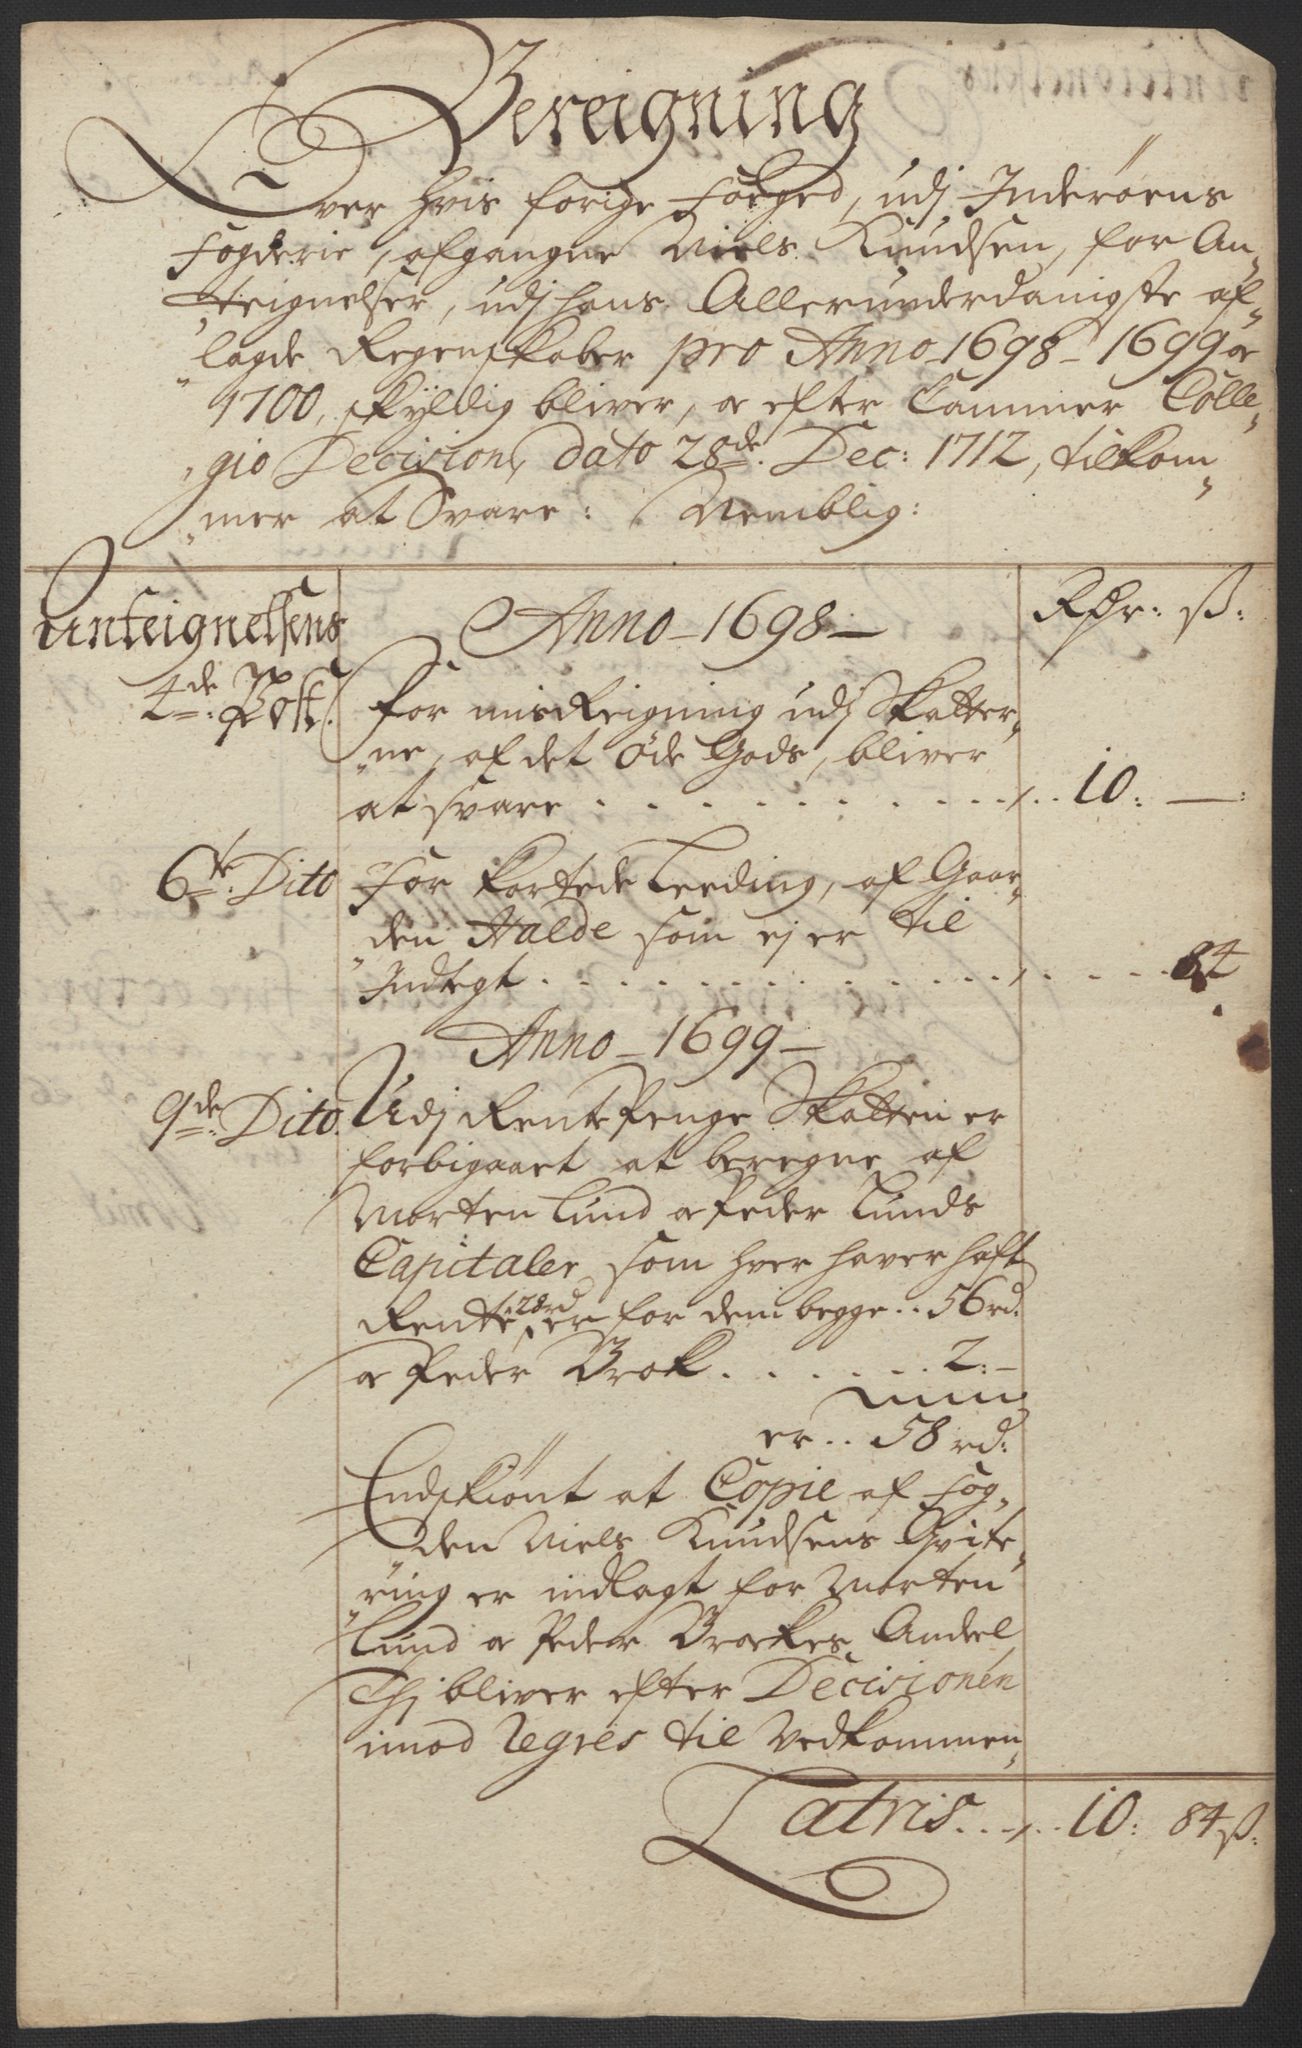 Bereigning
Over hvis forige Foeged, udj Inderöens
Fogderie, afgangne Niels Knudsen, for An„
„teignelser, udj hans Allerunderdanigste af„
„lagde Regenskaber pro Anno 1698 - 1699 &
1700, skÿldig bliver, & efter Cammer Colle„
„gio Decision, dato 28de Dec: 1712, tilkom„
„mer at Svare: Nemblig:
Anteignelsens
Anno 1698
Rdr: ß:
4de Post.
For misReigning udj Skatter„
„ne, af det øde Gods, bliver
at svare . . . . . . . . . . 10: —:
6te Dito
For kortede Leeding, af Gaar„
„den Halde som ej er til
Indtegt . . . . . . . . . . . . 84
Anno 1699
9de Dito.
Udj RentePenge Skatten er
forbigaaet at beregne af
Morten Lund & Peder Lunds
Capitaler, som hver haver haft
Rente 28rd er for dem begge .. 56rd:
& Peder Brok . . . . . . 2:—
er .. 58 rd:
Endskiönt at Copie af Fog„
„den Niels Knudsens Qvite„
„ring er indlagt for Morten
Lund & Peder Brockes Andeel
Thj bliver efter Decisionen
imod Regres til Vedkommen„
Latris . . . 10: 84 ß: